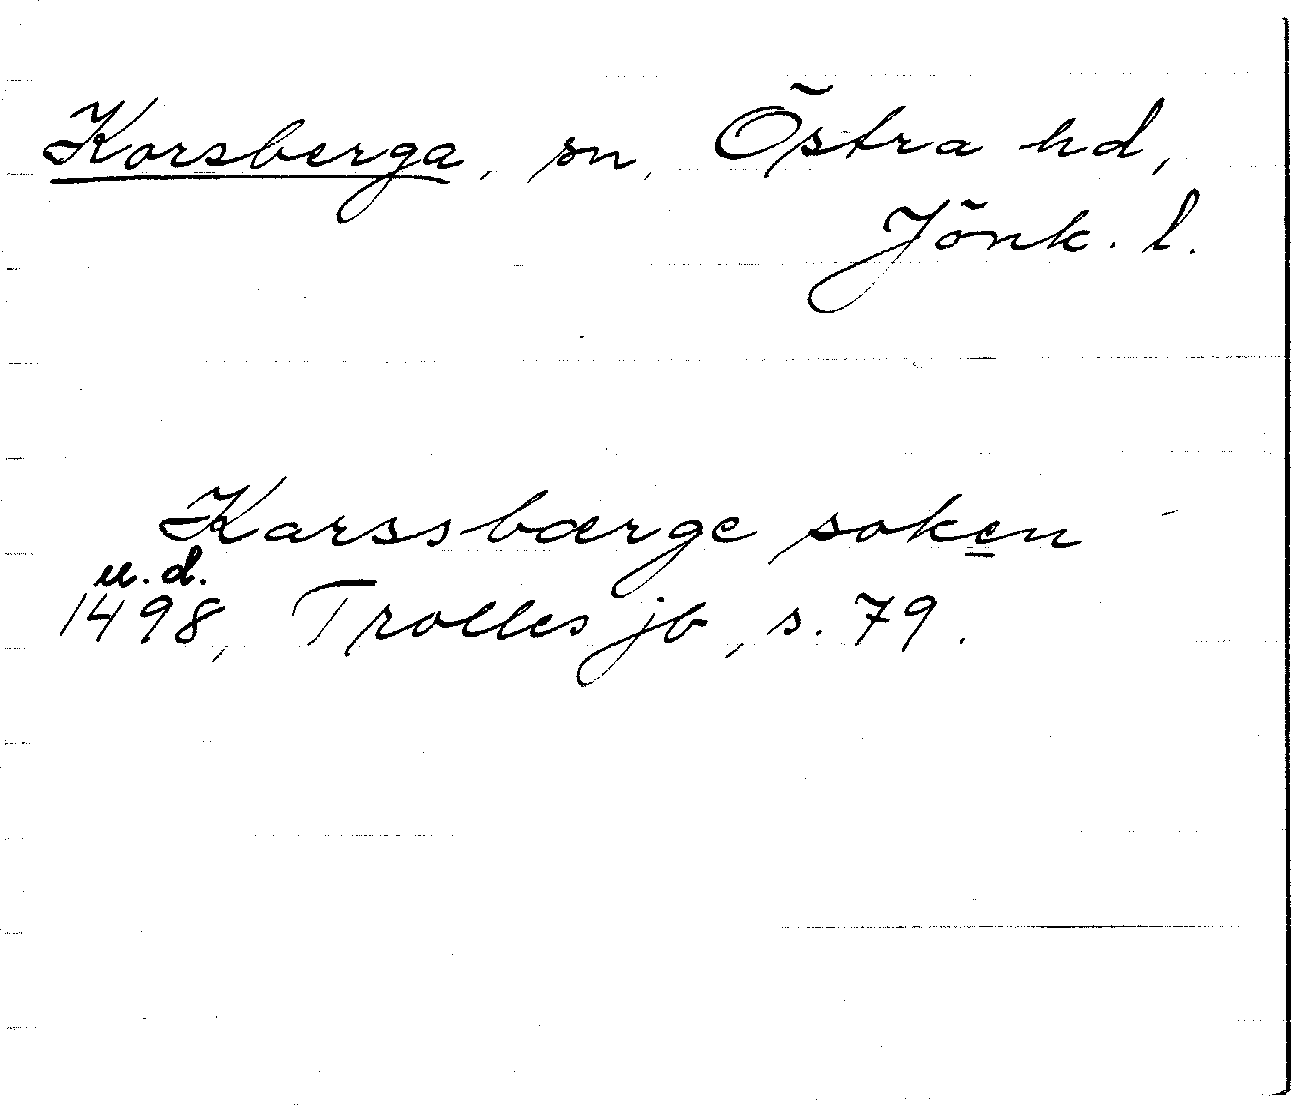 Korsberga, sn, Östra hd,
Jönk. l.
Karssbærge soken
u. d.
1498, Trolles jb, s. 79.